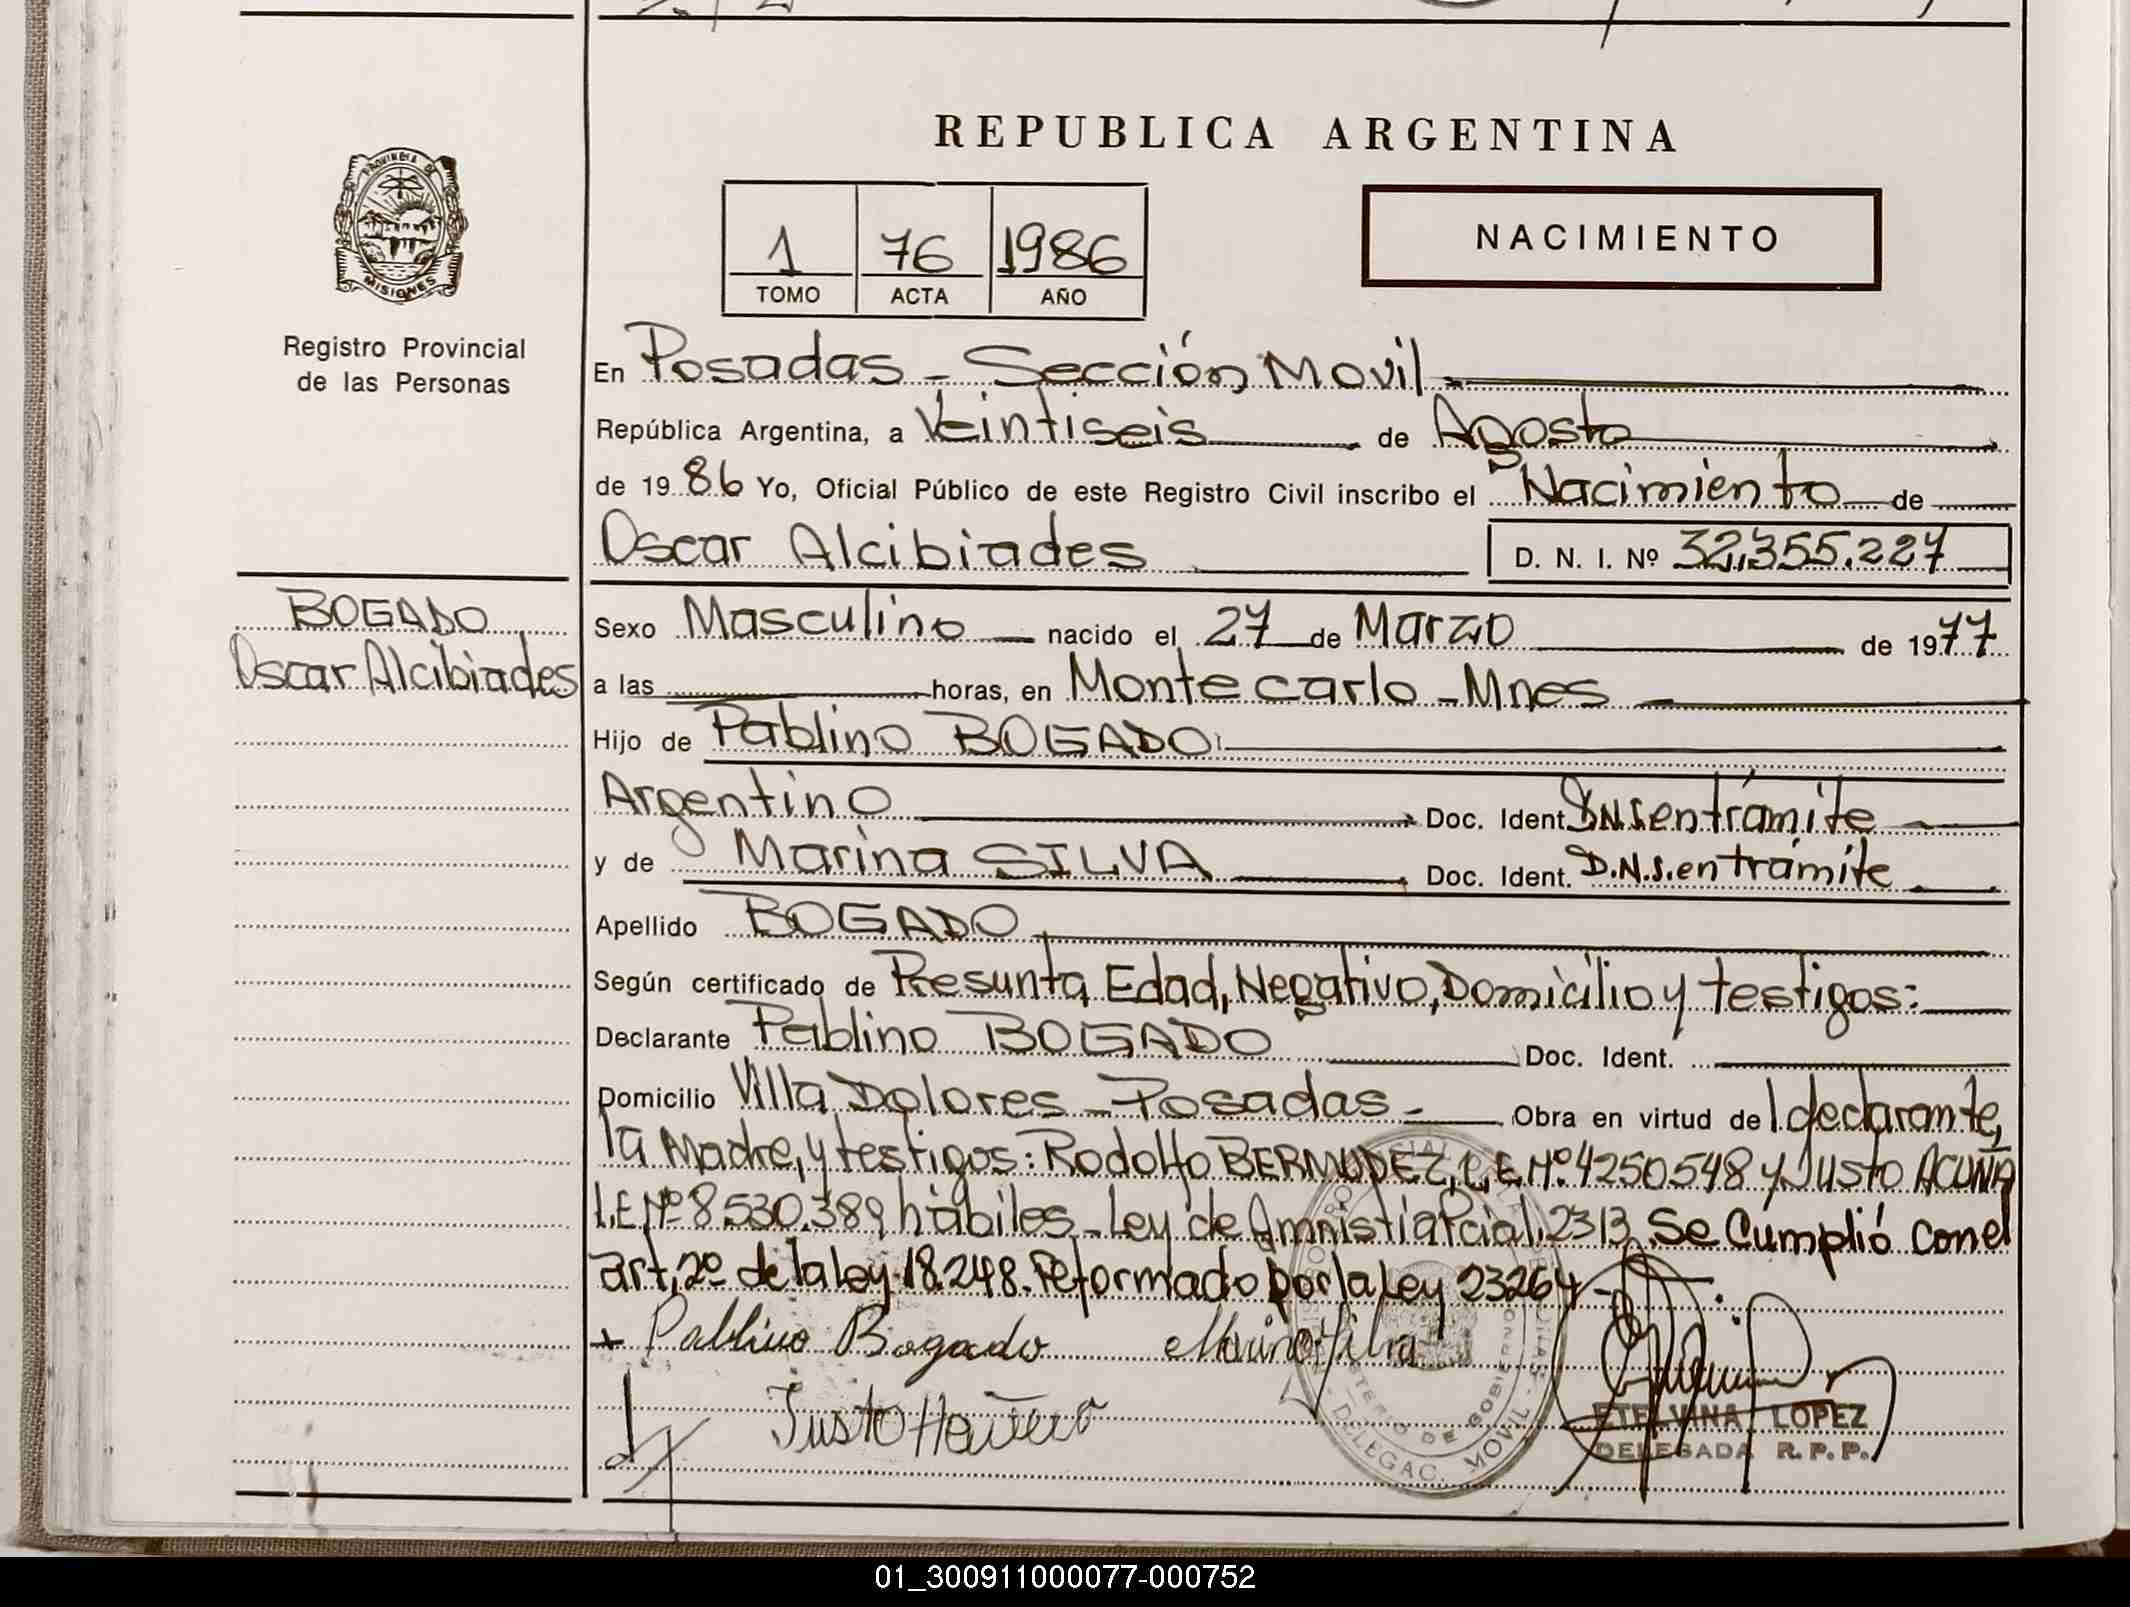 REPUBLICA ARGENTINA
PROVINCIA DE
MISIONES
Registro Provincial
de las Personas
1 76 1986
TOMO ACTA AÑO
NACIMIENTO
En Posadas - Sección Movil
República Argentina, a Veintiseis de Agosto
de 1986 Yo, Oficial Público de este Registro Civil inscribo el Nacimiento de
Oscar Alcibiades D. N. I. Nº 32.355.227
BOGADO
Oscar Alcibiades
Sexo Masculino nacido el 27 de Marzo de 1977
a las horas, en Montecarlo - Mnes
Hijo de Pablino BOGADO
Argentino Doc. Ident. D.N.I. en trámite
y de Marina SILVA Doc. Ident. D.N.I. en trámite
Apellido BOGADO
Según certificado de Presunta Edad, Negativo, Domicilio y testigos:
Declarante Pablino BOGADO Doc. Ident.
Domicilio Villa Dolores - Posadas - Obra en virtud del declarante,
la Madre, y testigos: Rodolfo BERMUDEZ, L.E. Nº 4250.548 y Justo ACUÑA
L.E Nº 8530.389 hábiles - Ley de Amnistia Pcial. 2313. Se Cumplió con el
art. 2º de la ley 18.248. Reformado por la Ley 23264 -
+ Pablino Bogado Marina Silva
Justo
DELEGAC. MOVIL
ETELVINA LOPEZ
DELEGADA R. P. P.
01_300911000077-000752